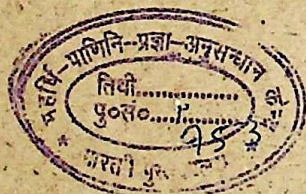 महर्षि-पाणिनि-प्रज्ञा-अनुसन्धान
तिथी..............
पु०सं०....
953
भारती